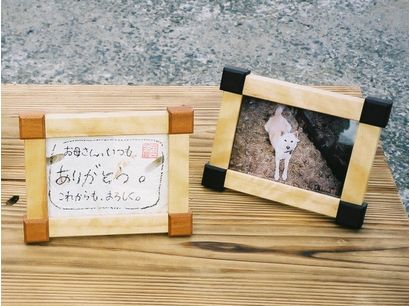 お母さん、いつも
ありがとう。
これからも、よろしく。